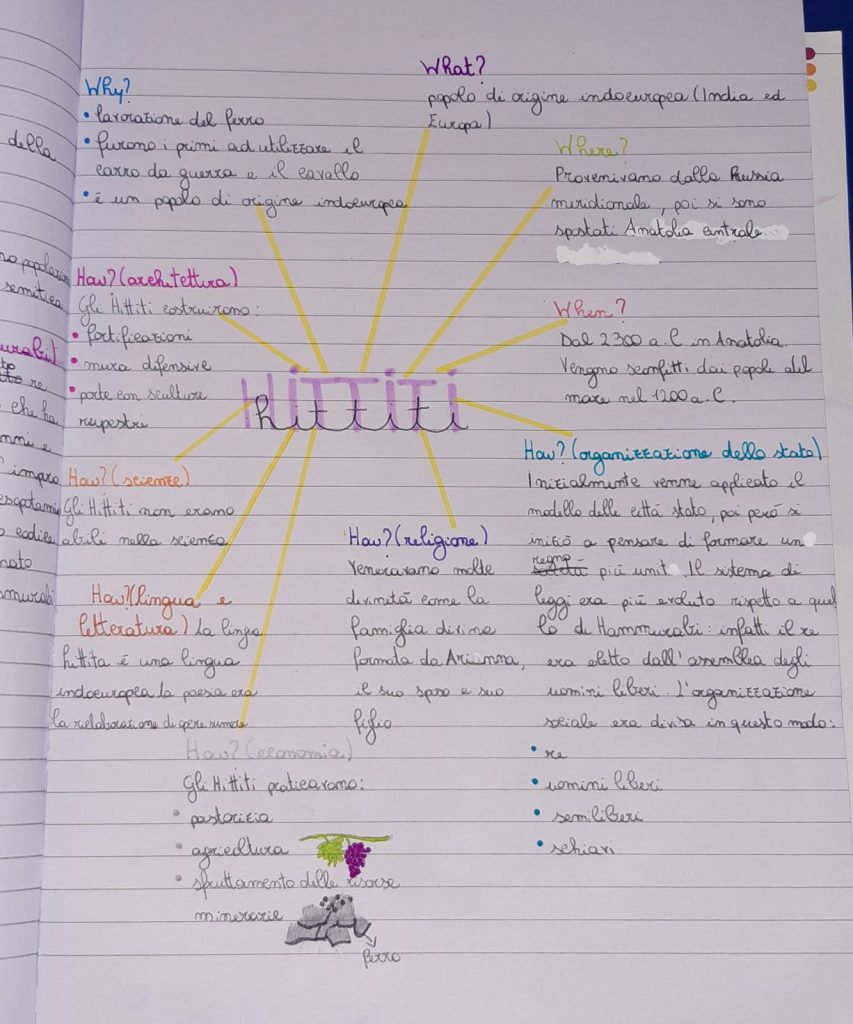 What?
popolo di origine indoeuropea (India ed
Europa)
Why?
• lavorazione del ferro
• furono i primi ad utilizzare il
carro da guerra e il cavallo
• è un popolo di origine indoeuropea
Where?
Provenivano dalla Russia
meridionale, poi si sono
spostati Anatolia centrale
How? (architettura)
Gli Hittiti costruirono:
• fortificazioni
• mura difensive
• porte con sculture
rupestri
When?
Dal 2300 a.C in Anatolia.
Vengno sconfitti dai popoli del
mare nel 1200 a.C.
HITTITI
hittiti
How? (scienze)
Gli Hittiti non erano
abili nella scienza
How? (organizzazione dello stato)
Inizialmente venne applicato il
modello delle città stato, poi però si
iniziò a pensare di formare un
regno
più unit. Il sistema di
leggi era più evoluto rispetto a quel
lo di Hammurabi: infatti il re
era eletto dall'assemblea degli
uomini liberi. L'organizzazione
sociale era divisa in questo modo:
• re
• uomini liberi
• semiliberi
• schiavi
How? (religione)
Veneravano molte
divinità come la
famiglia divina
formata da Arianna,
il suo sposo e suo
figlio
How? (lingua e
letteratura) la linga
hittita è una lingua
indoeuropea la poesia era
la rielaborazione di opere sumere
How? (economia)
Gli Hittiti praticavano:
• pastorizia
• agricoltura
• sfruttamento delle risorse
minerarie
ferro
della
semitica
re
che ha